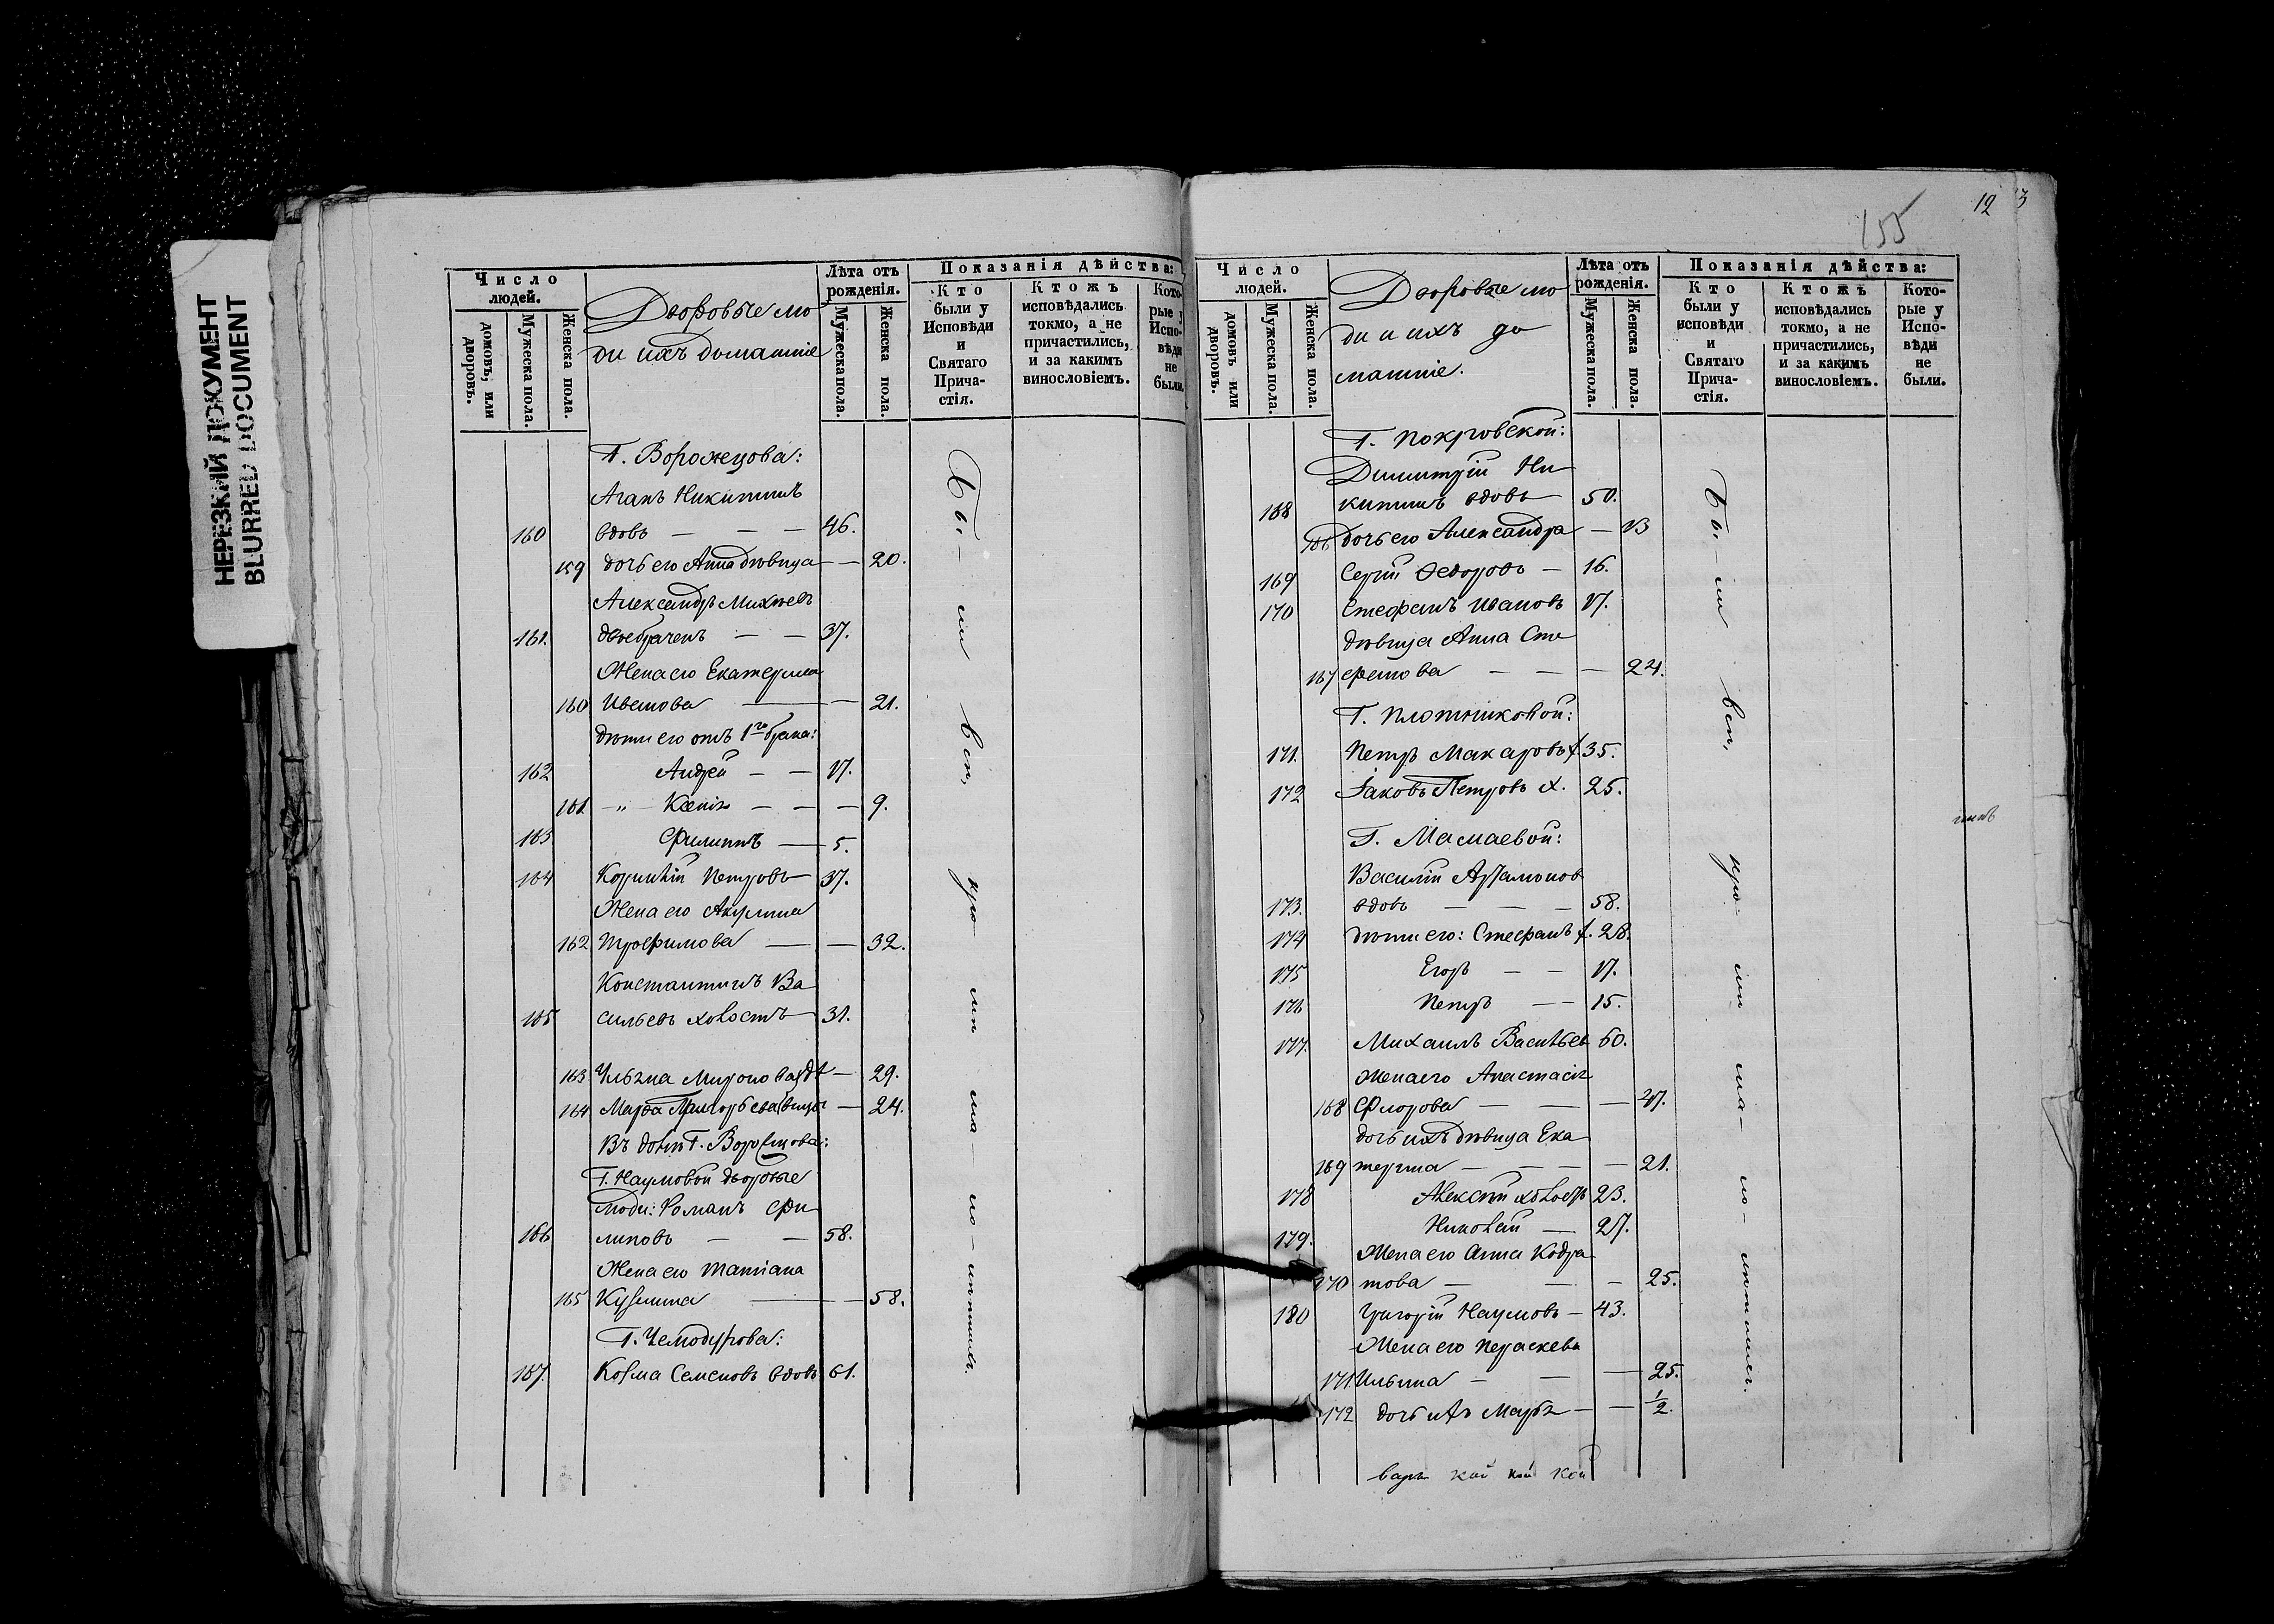 НЕРЕЗКИЙ ДОКУМЕНТ
BLURRED DOCUMENT
Число
людей.
домовъ, или
дворовъ.
Мужеска пола.
Женска пола.
Дворовые лю
ди ихъ домашніе
Лѣта отъ
рожденія.
Мужеска пола.
Женска пола.
Показанія дѣйства:
Кто
были у
Исповѣди
и
Святаго
Прича-
стія.
Ктожъ
исповѣдались
токмо, а не
причастились,
и за какимъ
винословіемъ.
Кото-
рые у
Испо-
вѣди
не
были.
Г. Ворожецова:
Агапъ Никитинъ
160 вдовъ — — 46.
159 дочь его Анна дѣвица — — 20.
Александръ Михѣевъ
161. двоебраченъ — — 37.
Жена его Екатерина
160 Иванова — — 21.
дѣти его отъ 1го брака:
162 Андрей — — 17.
161 — " — Ксенія — — — 9.
163 Филиппъ — 5.
164 Корнилій Петровъ 37.
Жена его Акулина
162 Трофимова — — 32.
Константинъ Ва
165 сильевъ холостъ 31.
163 Ульяна Миронова — 29.
164 Марѳа Григорьева — 24.
Въ домѣ Г.
Г. Наумовой дворовые
люди: Романъ Фи
166 липовъ — — 58.
Жена его Татіана
165 Кузмина — — 58.
Г. Чемодурова:
167. Козма Семеновъ вдовъ 61.
Бы- ли вси, при- ли на- ис-
155
12 3
Число
людей.
домовъ или
дворовъ.
Мужеска пола.
Женска пола.
Дворовые лю
ди и ихъ до
машніе.
Лѣта отъ
рожденія.
Мужеска пола.
Женска пола.
Показанія дѣйства:
Кто
были у
исповѣди
и
Святаго
Прича-
стія.
Ктожъ
исповѣдались
токмо, а не
причастились,
и за какимъ
винословіемъ.
Кото-
рые у
Испо-
вѣди
не
были.
Г. Покровской:
Димитрій Ни
168 китинъ вдовъ 50.
166 дочь его Александра — 13
169 Сергій Ѳедоровъ — 16.
170 Стефанъ Ивановъ 17.
дѣвица Анна Сте
167 фанова — — — 24.
Г. Плотниковой:
171. Петръ Макаровъ х. 35.
172 Іаковъ Петровъ х. 25.
Г. Мамаевой:
Василій Артамонов
173. вдовъ — — — 58.
174 дѣти его: Стефанъ х. 28.
175 Егоръ — — 17.
176 Петръ — — 15.
177. Михаилъ Васильев 60.
жена его Анастасія
168 Флорова — — — 47.
дочь ихъ дѣвица Ека
169 терина — — — — 21.
178 Алексѣй холостъ 23.
179. Николай — 27.
Жена его Анна Кодра
170 това — — — 25.
180 Григорій Наумовъ — 43.
Жена его Параскева
171 Ильина — — — 25.
172 дочь ихъ Марѳа — — 1/2.
кой кой кой